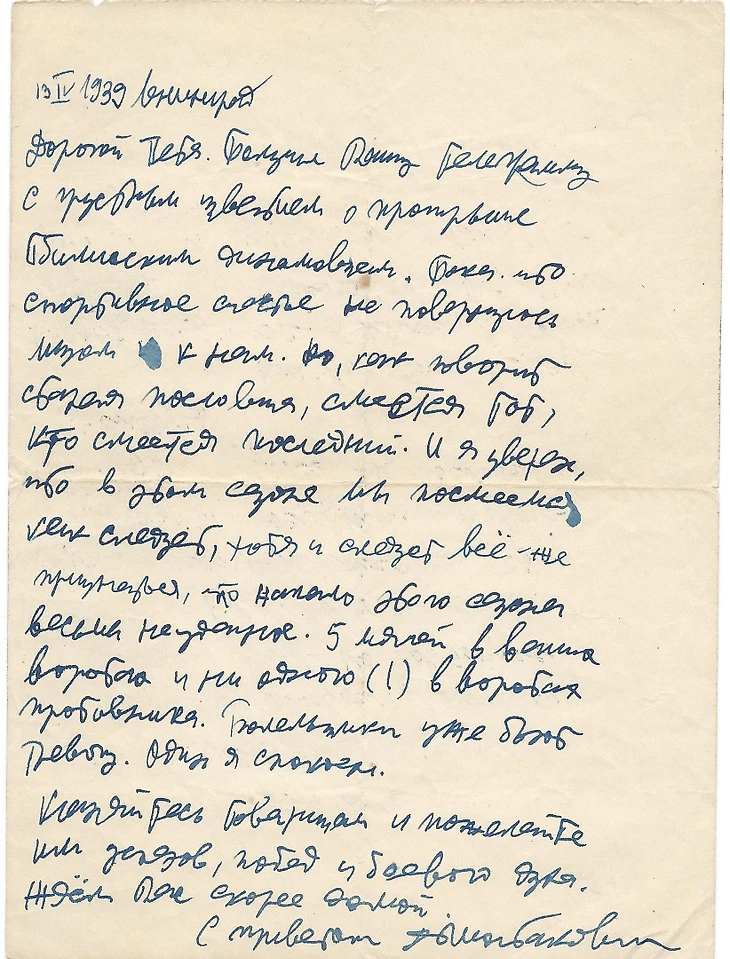 13 IV 1939 Ленинград
Дорогой Петя. Получил Вашу телеграмму
с грустным известием о проигрыше
Тбилисским динамовцам. Пока что
спортивное счастье не повернулось
лицом к нам. Но, как говорит
старая пословица, смеётся тот,
кто смеётся последний. И я уверен,
что в этом сезоне мы посмеемся
как следует, хотя и следует всё-же
признаться, что начало этого сезона
весьма неудачное. 5 мячей в ваши
ворота и ни одного (!) в ворота
противника. Болельщики уже бьют
тревогу. Один я спокоен.
Кланяйтесь товарищам и пожелайте
им успехов, побед и боевого духа.
Ждём Вас скорее домой.
С приветом Д Шостакович